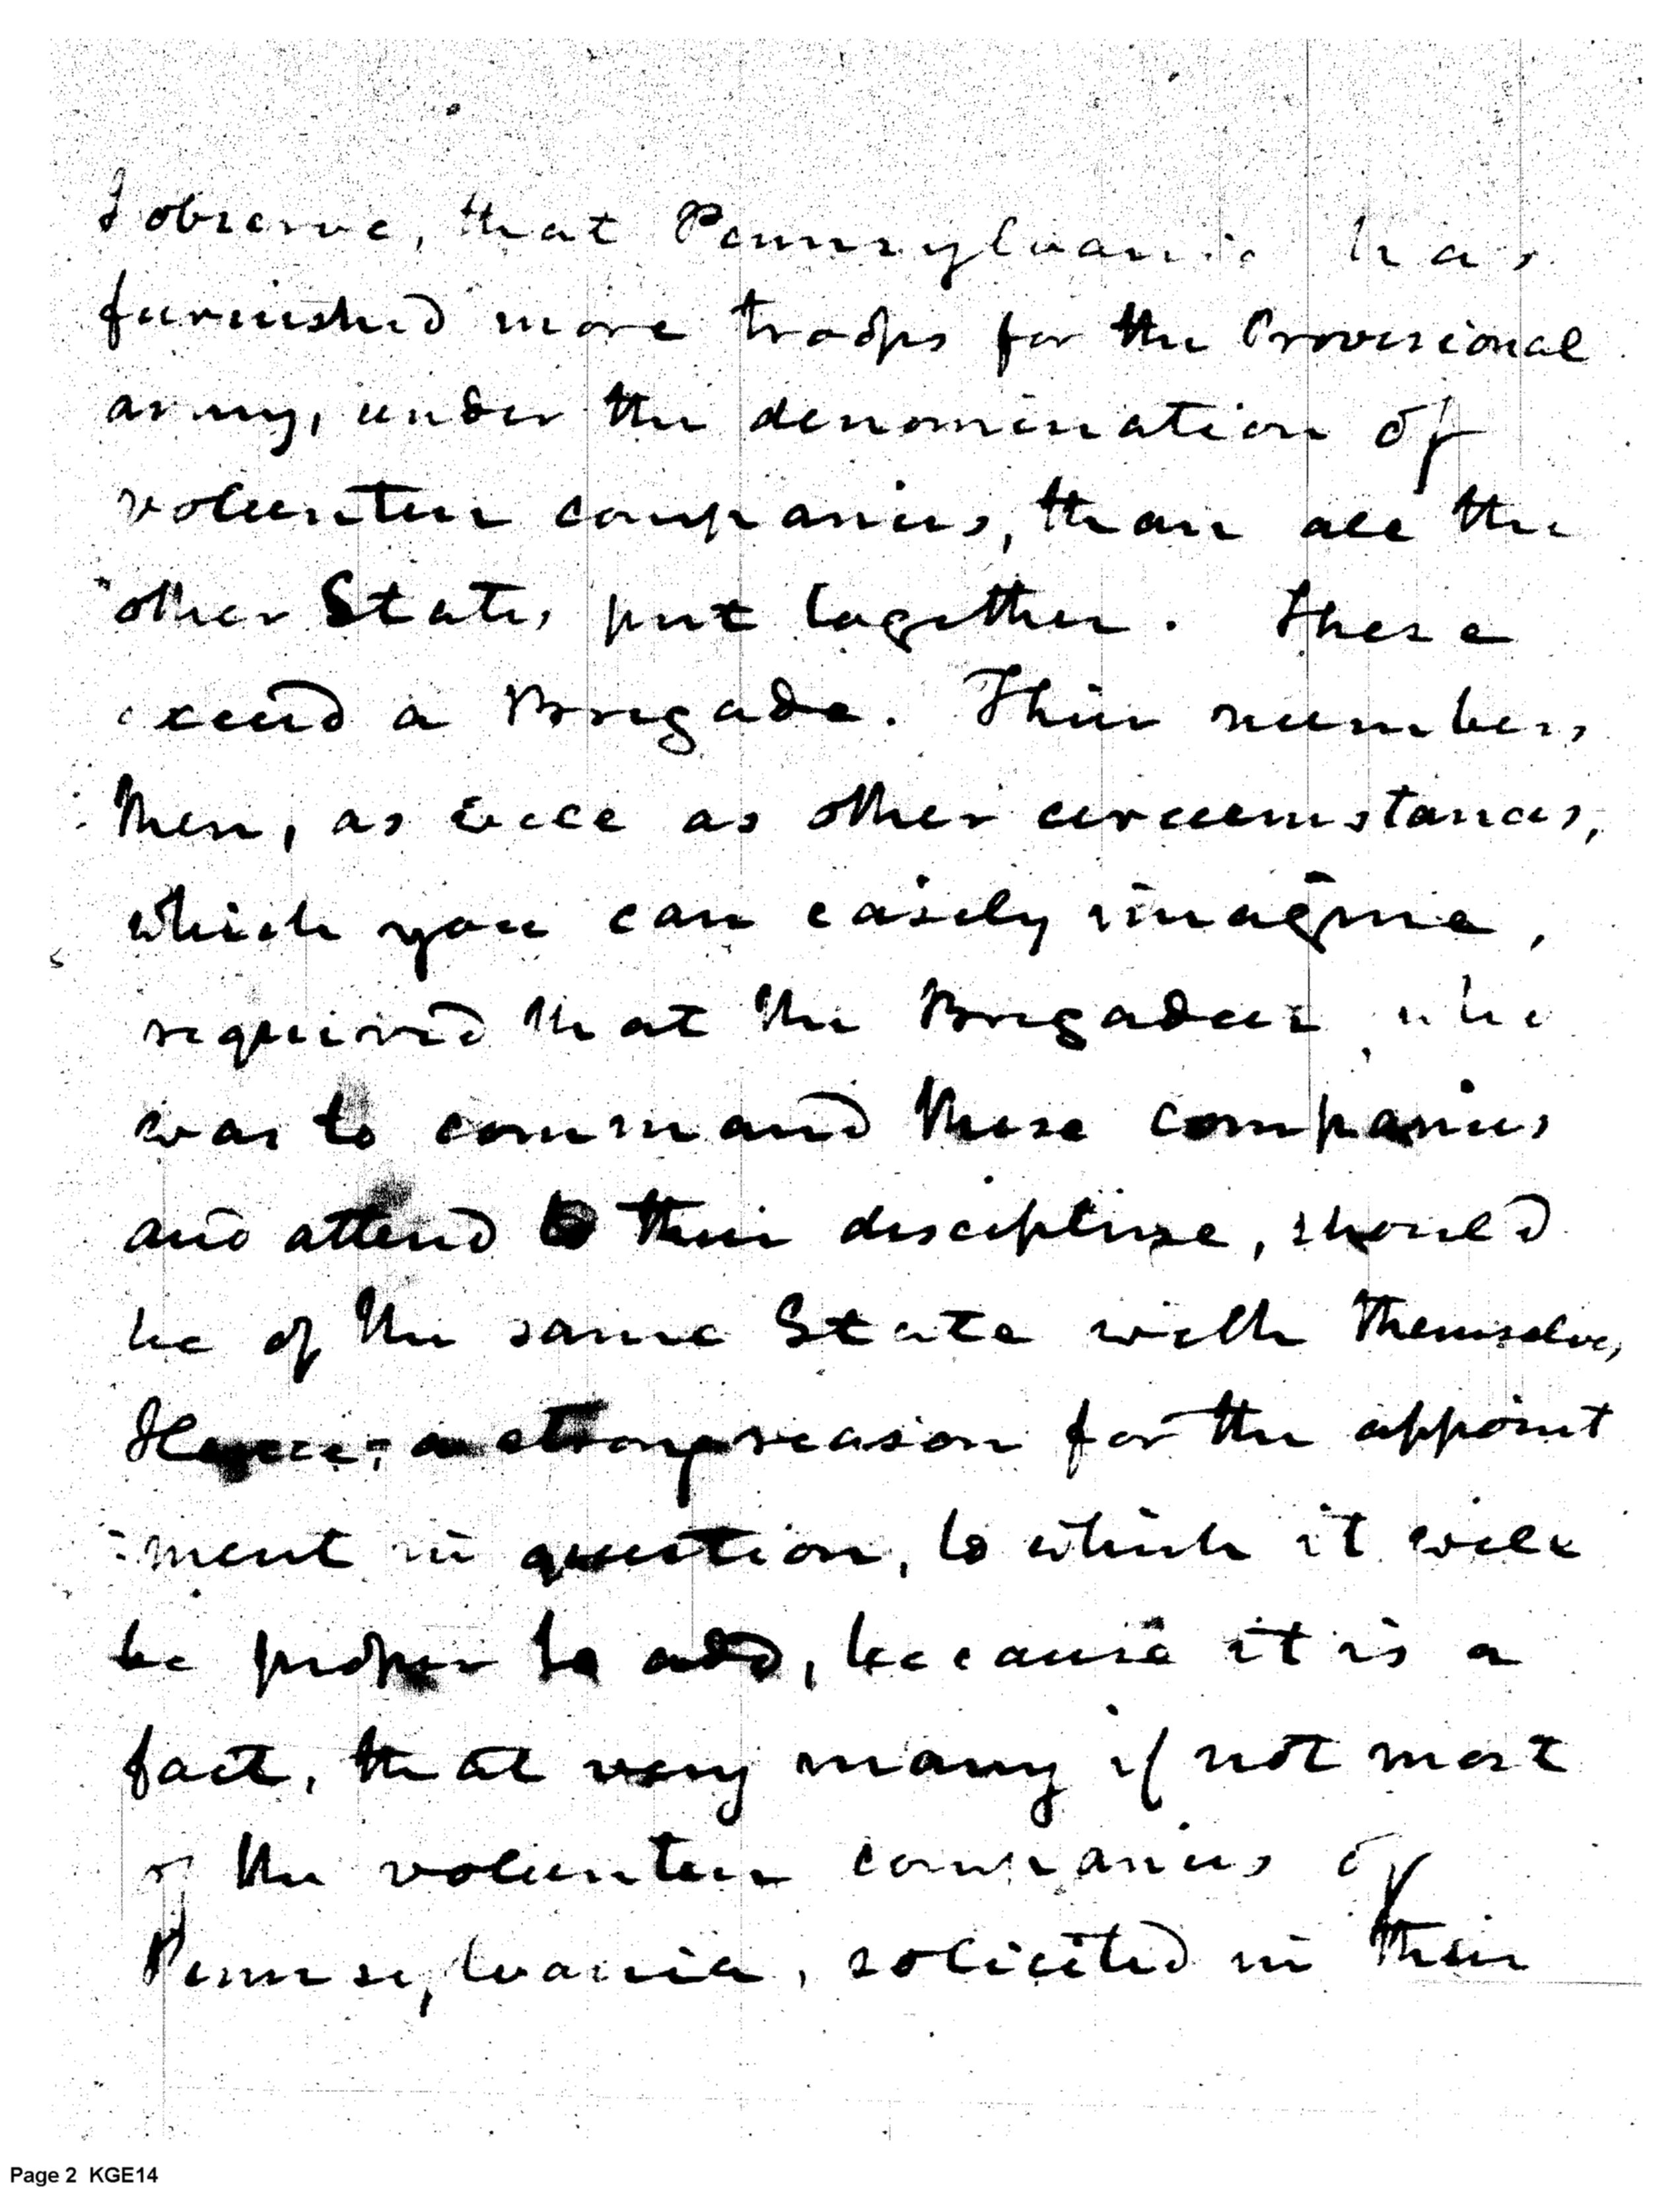 I observe, that Pennsylvania has
furnished more troops for the Provisional
army, under the denomination of
volunteer companies, than all the
other States put together. These
exceed a Brigade. Their numbers
then, as well as other circumstances,
which you can easily imagine,
required that the Brigadier who
was to command these companies
and attend to their discipline, should
be of the same State with themselves,
Hence, a strong reason for the appoint
ment in question, to which it will
be proper to add, because it is a
fact, that very many if not most
of the volunteer companies of
Pennsylvania, solicited in their
Page 2 KGE14